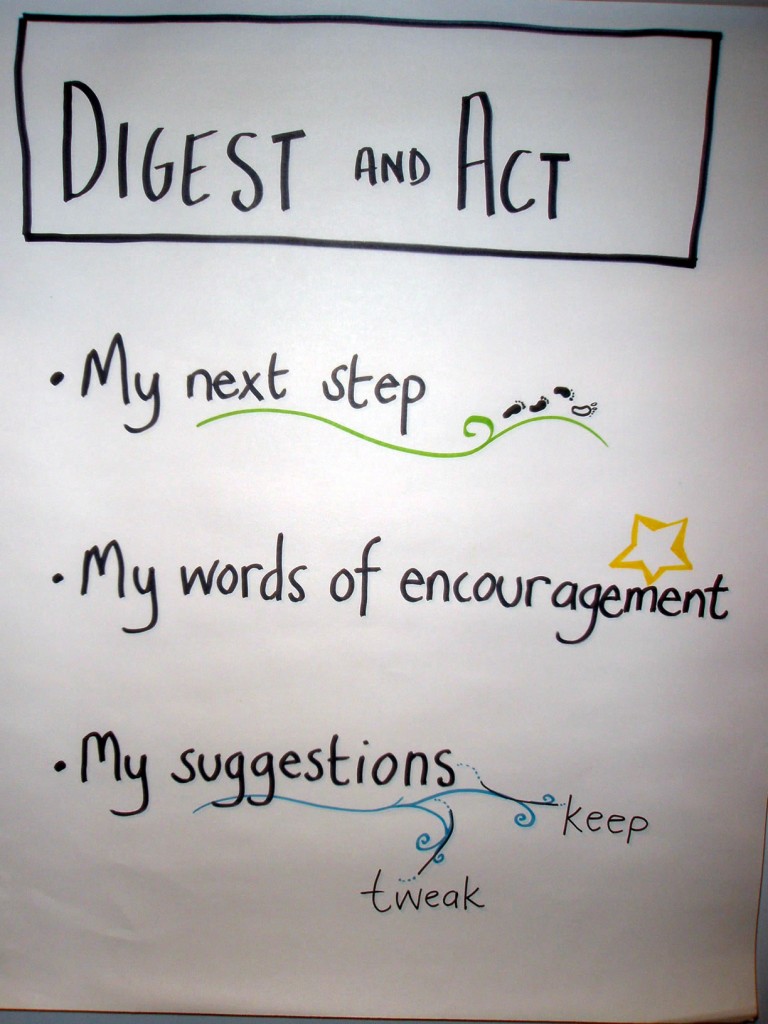 DIGEST AND ACT
• My next step
• My words of encouragement
• My suggestions
keep
tweak